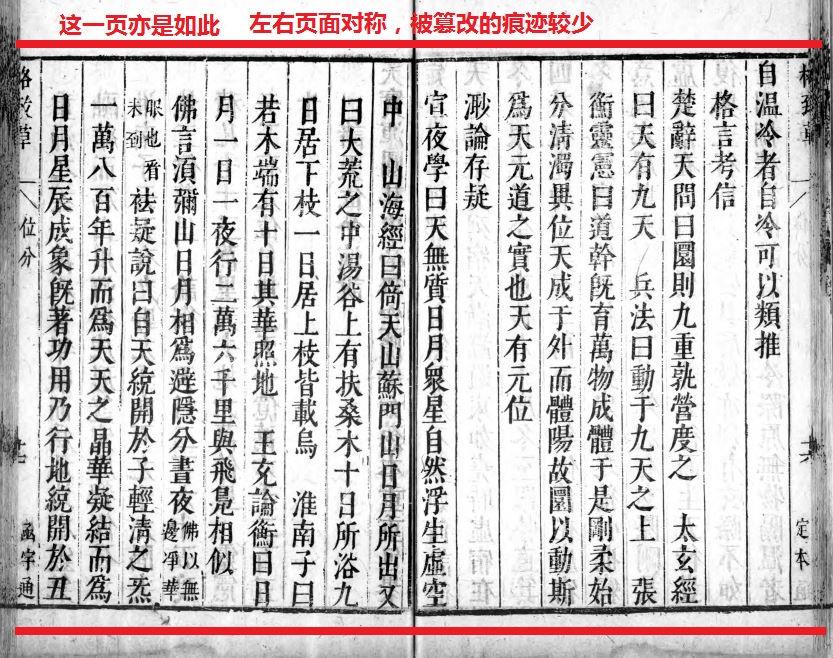 这一页亦是如此 左右页面对称，被篡改的痕迹较少
自温冷者自冷可以類推
格言考信
楚辭天問曰圜則九重孰營度之 太玄經
曰天有九天 兵法曰動于九天之上 張
衡靈憲曰道幹旣育萬物成體于是剛柔始
分清濁異位天成于外而體陽故圜以動斯
爲天元道之實也天有元位
渺論存疑
宣夜學曰天無質日月衆星自然浮生虛空
中 山海經曰倚天山蘇門山日月所出又
曰大荒之中湯谷上有扶桑木十日所浴九
日居下枝一日居上枝皆載烏 淮南子曰
若木端有十日其華照地 王充論衡曰日
月一日一夜行二萬六千里與飛鳧相似
佛言須彌山日月相爲避隱分晝夜
佛以無
邊淨華
眼也看
未到
祛疑說曰自天統開於子輕清之炁
一萬八百年升而爲天天之晶華凝結而爲
日月星辰成象旣著功用乃行地統開於丑
格致草
位分
函宇通
定本